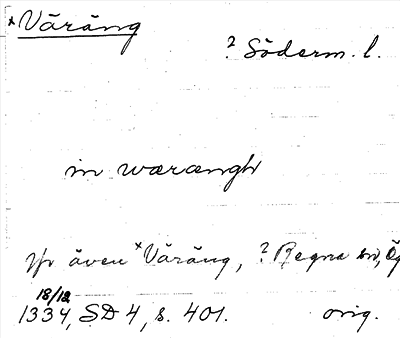 *Väräng
? Söderm. l.
in wærængh
Jfr även *Väräng, ? Regna sn, Ög
18/12
1334, SD 4, s. 401. orig.